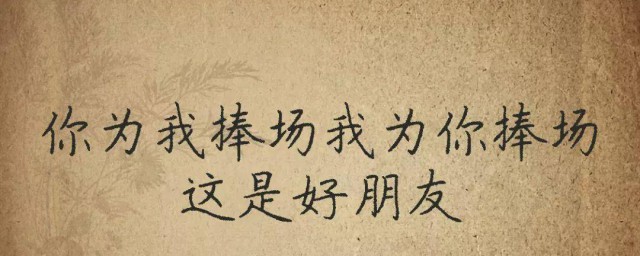 你为我捧场我为你捧场
这是好朋友